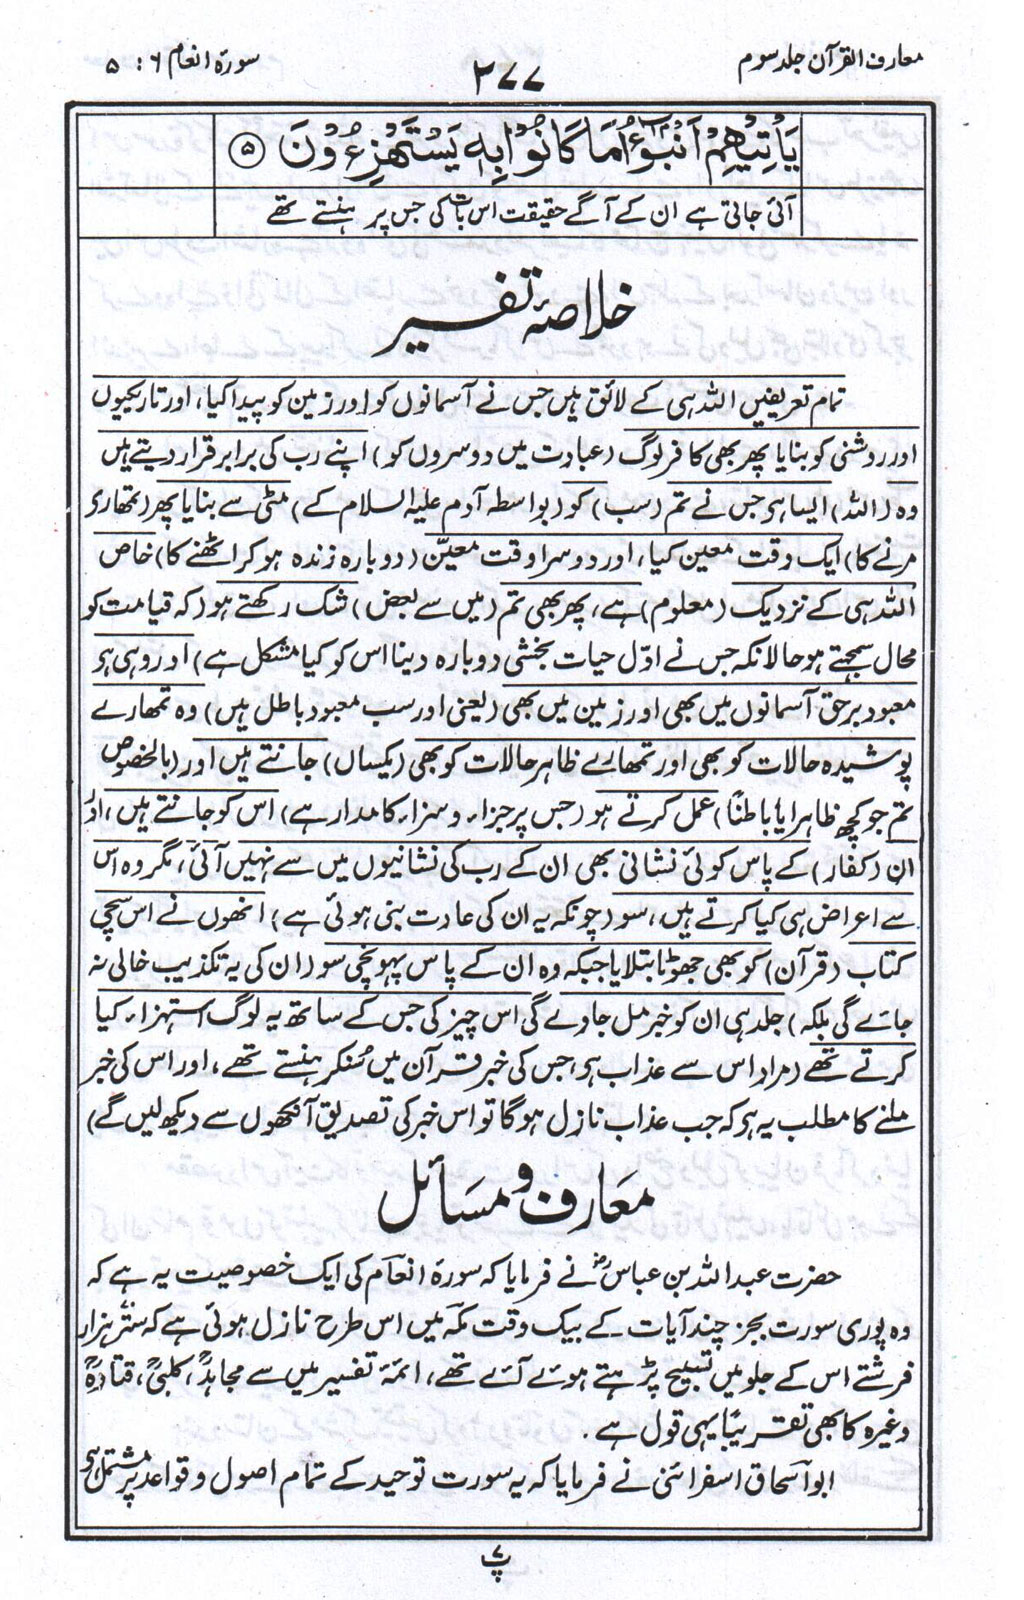 معارف القرآن جلد سوم
۲۷۷
سورۂ انعام ۶ : ۵
يَأْتِيْهِمْ اَنْۢبٰٓؤُا مَا كَانُوْا بِهٖ يَسْتَهْزِءُوْنَ ۝۵
آئی جاتی ہے ان کے آگے حقیقت اس بات کی جس پر ہنستے تھے
خلاصۂ تفسیر
تمام تعریفیں اللہ ہی کے لائق ہیں جس نے آسمانوں کو اور زمین کو پیدا کیا، اور تاریکیوں
اور روشنی کو بنایا پھر بھی کافر لوگ (عبادت میں دوسروں کو) اپنے رب کی برابر قرار دیتے ہیں
وہ (اللہ) ایسا ہی جس نے تم (سب) کو (بواسطہ آدم علیہ السلام کے) مٹی سے بنایا پھر (تمھاری
مرنے کا) ایک وقت معین کیا، اور دوسرا وقت معیّن (دوبارہ زندہ ہو کر اٹھنے کا) خاص
اللہ ہی کے نزدیک (معلوم) ہے، پھر بھی تم (میں سے بعض) شک رکھتے ہو (کہ قیامت کو
محال سمجھتے ہو حالانکہ جس نے اوّل حیات بخشی دوبارہ دینا اس کو کیا مشکل ہے) اور وہی ہی
معبود برحق آسمانوں میں بھی اور زمین میں بھی (یعنی اور سب معبود باطل ہیں) وہ تمھارے
پوشیدہ حالات کو بھی اور تمھارے ظاہر حالات کو بھی (یکساں) جانتے ہیں اور (بالخصوص
تم جو کچھ ظاہرا یا باطنًا) عمل کرتے ہو (جس پر جزاء و سزاء کا مدار ہے) اس کو جانتے ہیں، اور
ان (کفار) کے پاس کوئی نشانی بھی ان کے رب کی نشانیوں میں سے نہیں آئی، مگر وہ اس
سے اعراض ہی کیا کرتے ہیں، سو (چونکہ یہ ان کی عادت بنی ہوئی ہے) انھوں نے اس سچی
کتاب (قرآن) کو بھی جھوٹا بتلایا جبکہ وہ ان کے پاس پہونچی سو (ان کی یہ تکذیب خالی نہ
جاۓ گی بلکہ) جلد ہی ان کو خبر مل جاوے گی اس چیز کی جس کے ساتھ یہ لوگ استہزاء کیا
کرتے تھے (مراد اس سے عذاب ہی، جس کی خبر قرآن میں سُنکر ہنستے تھے، اور اس کی خبر
ملنے کا مطلب یہ ہو کہ جب عذاب نازل ہوگا تو اس خبر کی تصدیق آنکھوں سے دیکھ لیں گے)
معَارف و مسَائل
حضرت عبد اللہ بن عباسؓ نے فرمایا کہ سورۂ انعاؔم کی ایک خصوصیت یہ ہے کہ
وہ پوری سورت بجز چند آیات کے بیک وقت مکّہ میں اس طرح نازل ہوئی ہے کہ ستّر ہزار
فرشتے اس کے جلو میں تسبیح پڑہتے ہوۓ آۓ تھے، ائمۂ تفسیر میں سے مجاہدؒ، کلبیؒ، قتادہؒ
وغیرہ کا بھی تقریبًا یہی قول ہے۔
ابو اسحاق اسفرائنی نے فرمایا کہ یہ سورت توحید کے تمام اصول و قواعد پر مشتمل ہی
پ ۷